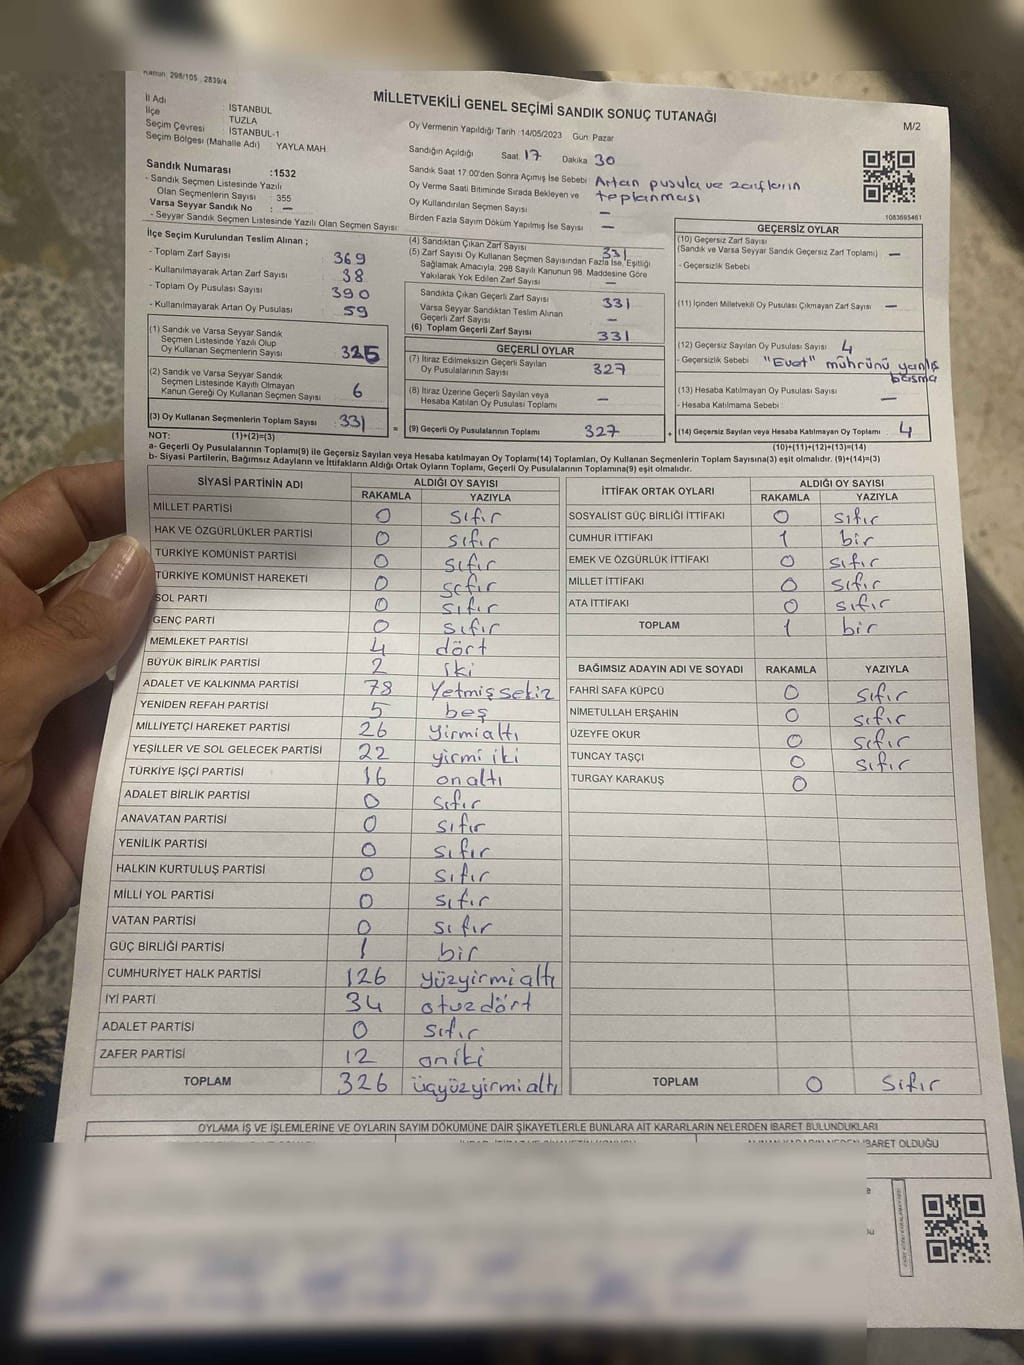 Kanun 298/105 , 2839/4
MİLLETVEKİLİ GENEL SEÇİMİ SANDIK SONUÇ TUTANAĞI
M/2
İl Adı : İSTANBUL
İlçe : TUZLA
Seçim Çevresi : İSTANBUL-1
Seçim Bölgesi (Mahalle Adı) : YAYLA MAH
Sandık Numarası :1532
- Sandık Seçmen Listesinde Yazılı
Olan Seçmenlerin Sayısı : 355
Varsa Seyyar Sandık No : —
- Seyyar Sandık Seçmen Listesinde Yazılı Olan Seçmen Sayısı
Oy Vermenin Yapıldığı Tarih :14/05/2023 Gün: Pazar
Sandığın Açıldığı Saat 17 Dakika 30
Sandık Saat 17:00'den Sonra Açılmış İse Sebebi Artan pusula ve zarfların
Oy Verme Saati Bitiminde Sırada Bekleyen ve toplanması
Oy Kullandırılan Seçmen Sayısı —
Birden Fazla Sayım Döküm Yapılmış İse Sayısı —
1083695461
İlçe Seçim Kurulundan Teslim Alınan ;
- Toplam Zarf Sayısı 369
- Kullanılmayarak Artan Zarf Sayısı 38
- Toplam Oy Pusulası Sayısı 390
- Kullanılmayarak Artan Oy Pusulası 59
(1) Sandık ve Varsa Seyyar Sandık
Seçmen Listesinde Yazılı Olup
Oy Kullanan Seçmenlerin Sayısı 325
(2) Sandık ve Varsa Seyyar Sandık
Seçmen Listesinde Kayıtlı Olmayan
Kanun Gereği Oy Kullanan Seçmen Sayısı 6
(3) Oy Kullanan Seçmenlerin Toplam Sayısı 331 =
(4) Sandıktan Çıkan Zarf Sayısı 331
(5) Zarf Sayısı Oy Kullanan Seçmen Sayısından Fazla İse, Eşitliği
Sağlamak Amacıyla, 298 Sayılı Kanunun 98. Maddesine Göre
Yakılarak Yok Edilen Zarf Sayısı —
Sandıkta Çıkan Geçerli Zarf Sayısı 331
Varsa Seyyar Sandıktan Teslim Alınan
Geçerli Zarf Sayısı —
(6) Toplam Geçerli Zarf Sayısı 331
GEÇERLİ OYLAR
(7) İtiraz Edilmeksizin Geçerli Sayılan
Oy Pusulalarının Sayısı 327
(8) İtiraz Üzerine Geçerli Sayılan veya
Hesaba Katılan Oy Pusulası Toplamı —
(9) Geçerli Oy Pusulalarının Toplamı 327 +
GEÇERSİZ OYLAR
(10) Geçersiz Zarf Sayısı
(Sandık ve Varsa Seyyar Sandık Geçersiz Zarf Toplamı) —
- Geçersizlik Sebebi
(11) İçinden Milletvekili Oy Pusulası Çıkmayan Zarf Sayısı —
(12) Geçersiz Sayılan Oy Pusulası Sayısı 4
- Geçersizlik Sebebi "Evet" mührünü yanlış
basma
(13) Hesaba Katılmayan Oy Pusulası Sayısı —
- Hesaba Katılmama Sebebi
(14) Geçersiz Sayılan veya Hesaba Katılmayan Oy Toplamı 4
NOT: (1)+(2)=(3) (10)+(11)+(12)+(13)=(14)
a- Geçerli Oy Pusulalarının Toplamı(9) ile Geçersiz Sayılan veya Hesaba Katılmayan Oy Toplamı(14) Toplamları, Oy Kullanan Seçmenlerin Toplam Sayısına(3) eşit olmalıdır. (9)+(14)=(3)
b- Siyasi Partilerin, Bağımsız Adayların ve İttifakların Aldığı Ortak Oyların Toplamı, Geçerli Oy Pusulalarının Toplamına(9) eşit olmalıdır.
SİYASİ PARTİNİN ADI ALDIĞI OY SAYISI
RAKAMLA YAZIYLA
MİLLET PARTİSİ 0 sıfır
HAK VE ÖZGÜRLÜKLER PARTİSİ 0 sıfır
TÜRKİYE KOMÜNİST PARTİSİ 0 sıfır
TÜRKİYE KOMÜNİST HAREKETİ 0 sıfır
SOL PARTİ 0 sıfır
GENÇ PARTİ 0 sıfır
MEMLEKET PARTİSİ 4 dört
BÜYÜK BİRLİK PARTİSİ 2 iki
ADALET VE KALKINMA PARTİSİ 78 Yetmiş sekiz
YENİDEN REFAH PARTİSİ 5 beş
MİLLİYETÇİ HAREKET PARTİSİ 26 yirmi altı
YEŞİLLER VE SOL GELECEK PARTİSİ 22 yirmi iki
TÜRKİYE İŞÇİ PARTİSİ 16 on altı
ADALET BİRLİK PARTİSİ 0 sıfır
ANAVATAN PARTİSİ 0 sıfır
YENİLİK PARTİSİ 0 sıfır
HALKIN KURTULUŞ PARTİSİ 0 sıfır
MİLLİ YOL PARTİSİ 0 sıfır
VATAN PARTİSİ 0 sıfır
GÜÇ BİRLİĞİ PARTİSİ 1 bir
CUMHURİYET HALK PARTİSİ 126 yüzyirmi altı
İYİ PARTİ 34 otuz dört
ADALET PARTİSİ 0 sıfır
ZAFER PARTİSİ 12 oniki
TOPLAM 326 üçyüzyirmi altı
İTTİFAK ORTAK OYLARI ALDIĞI OY SAYISI
RAKAMLA YAZIYLA
SOSYALİST GÜÇ BİRLİĞİ İTTİFAKI 0 sıfır
CUMHUR İTTİFAKI 1 bir
EMEK VE ÖZGÜRLÜK İTTİFAKI 0 sıfır
MİLLET İTTİFAKI 0 sıfır
ATA İTTİFAKI 0 sıfır
TOPLAM 1 bir
BAĞIMSIZ ADAYIN ADI VE SOYADI RAKAMLA YAZIYLA
FAHRİ SAFA KÜPCÜ 0 sıfır
NİMETULLAH ERŞAHİN 0 sıfır
ÜZEYFE OKUR 0 sıfır
TUNCAY TAŞÇI 0 sıfır
TURGAY KARAKUŞ 0
TOPLAM 0 sıfır
OYLAMA İŞ VE İŞLEMLERİNE VE OYLARIN SAYIM DÖKÜMÜNE DAİR ŞİKAYETLERLE BUNLARA AİT KARARLARIN NELERDEN İBARET BULUNDUKLARI
İBARET OLDUĞU